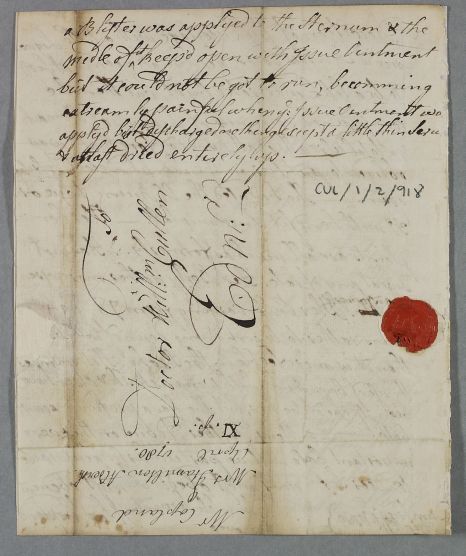 a Blister was applyed to the Sternum & the
midle of it keept open with Issue Ointment
but it could not be got to run, becomming
extreamly painful when ye Issue Ointment was
applyd but discharged nothing except a little thin Seru
& at last dried entirely up.
CUL/1/2/918
To
Doctor Willm Cullen
Edinr
XI
April 1780.
Mrs Hamilton
Mr Copland